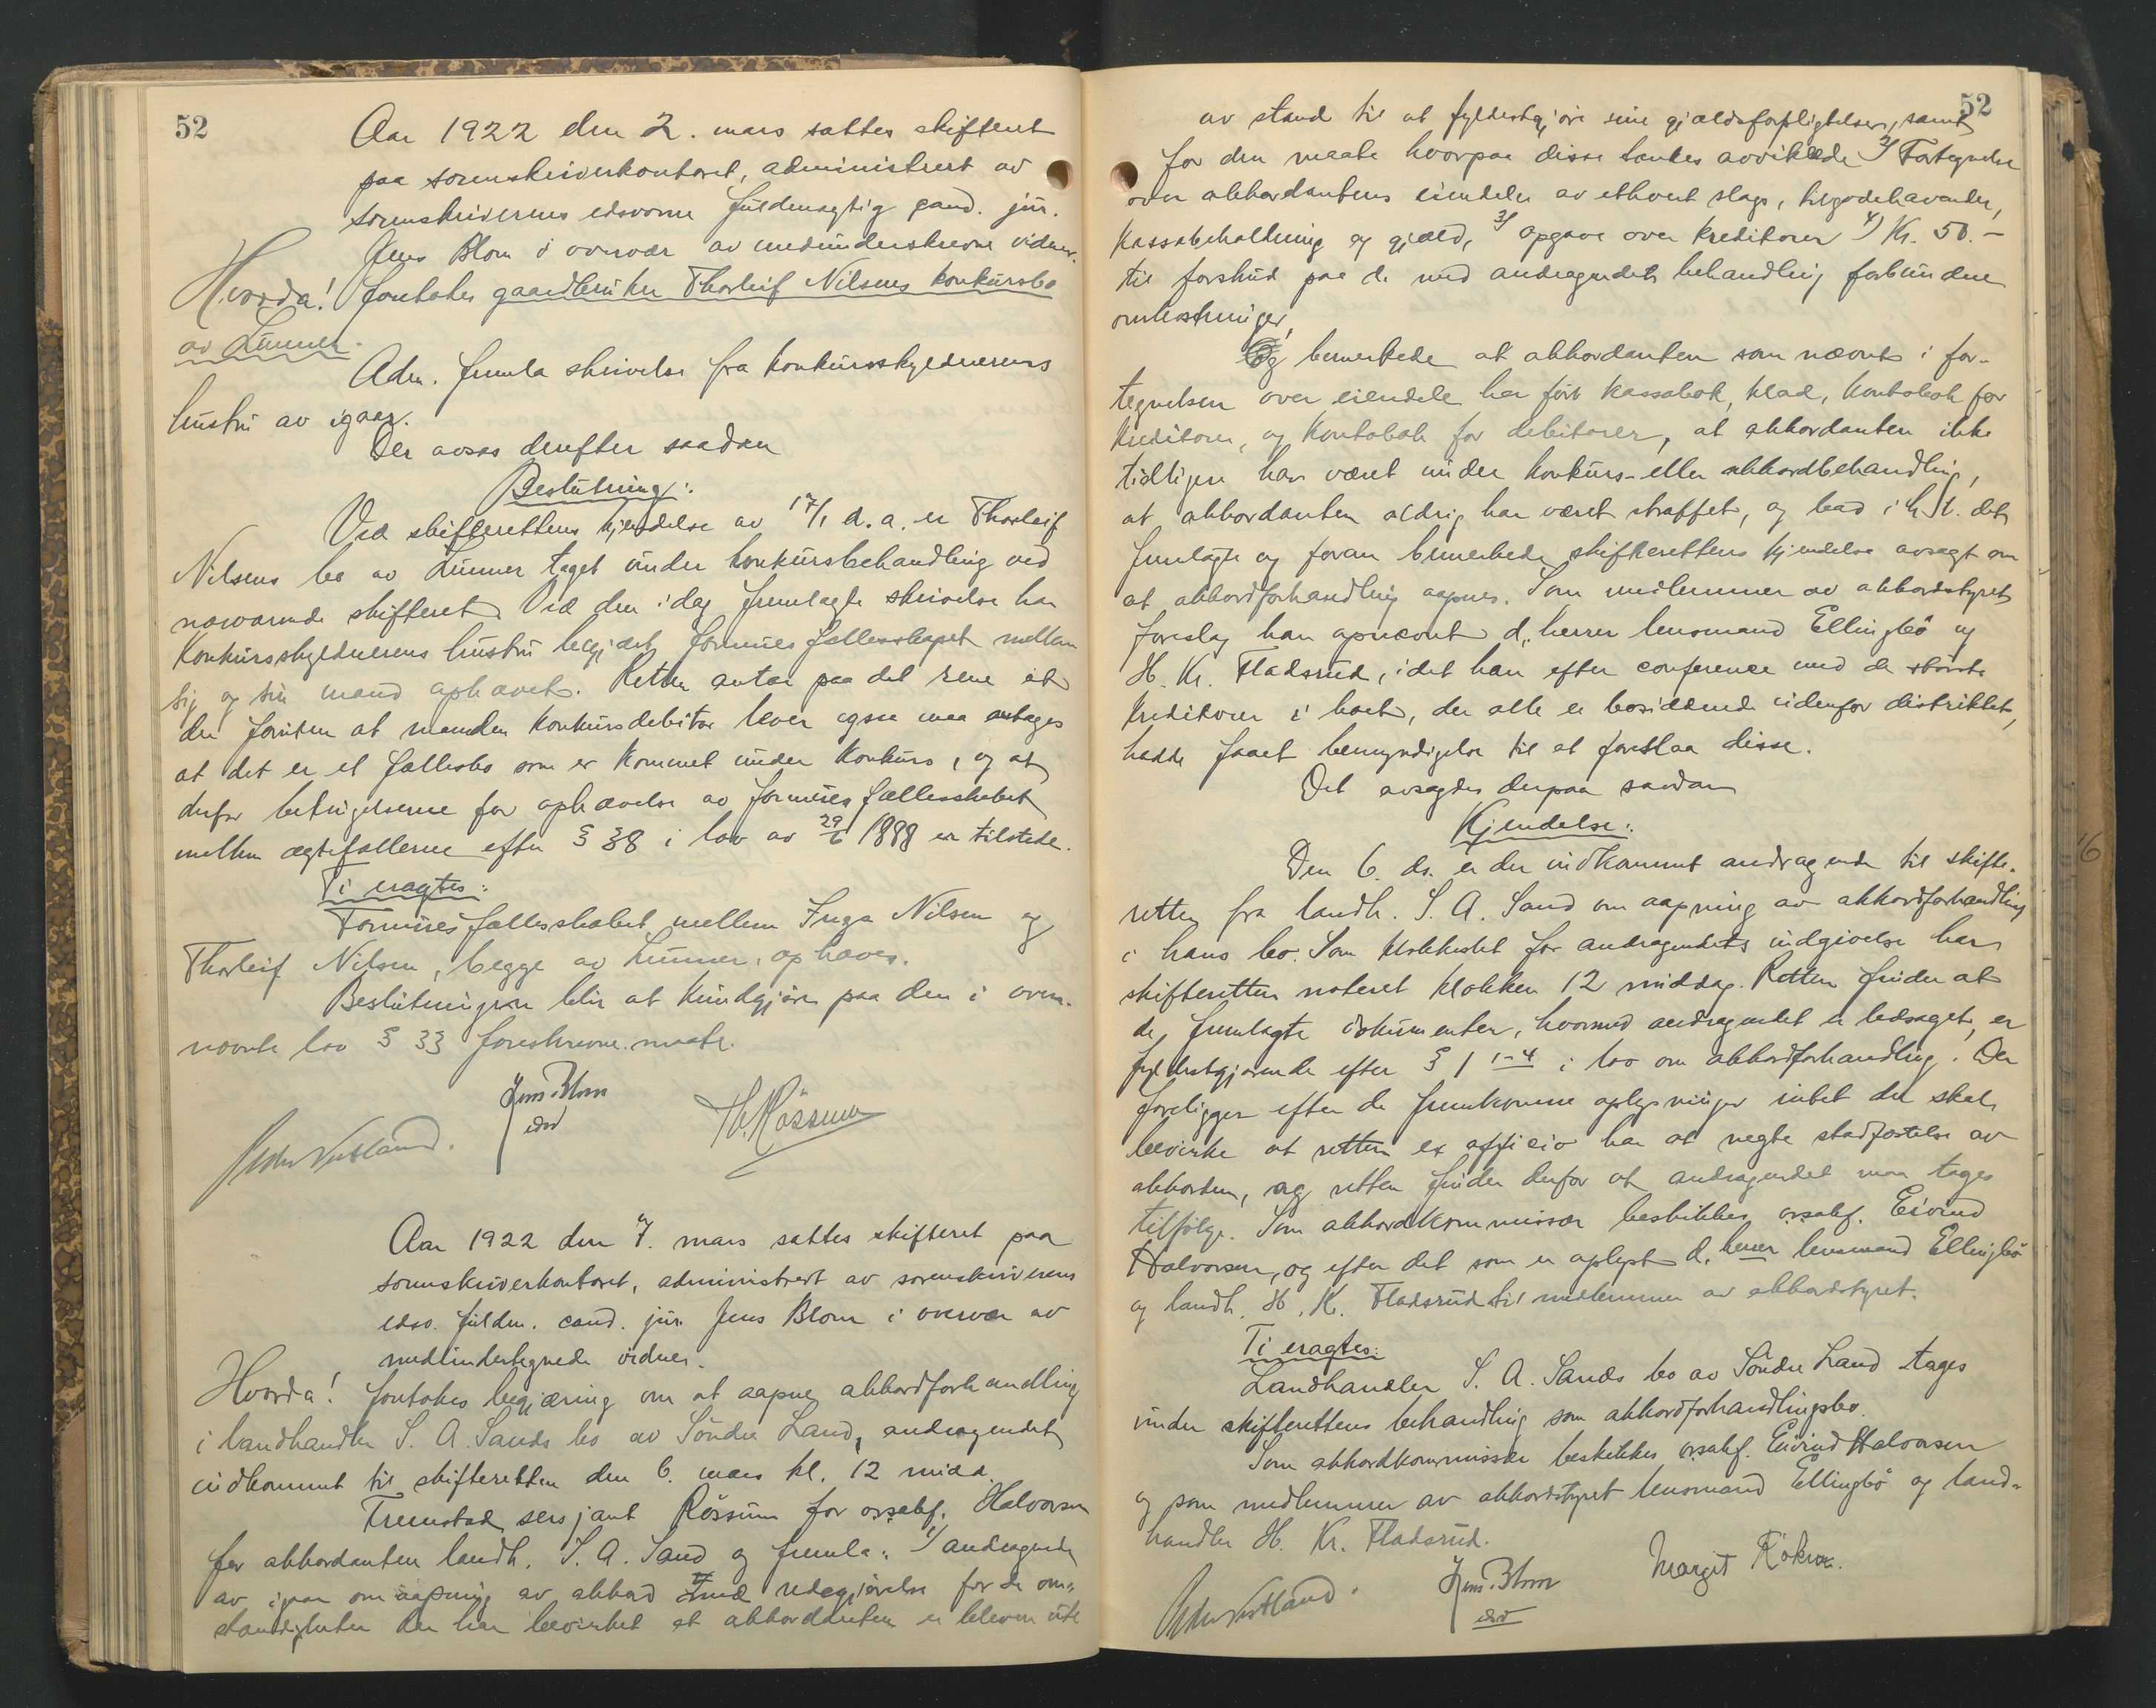 52
Aar 1922 den 2. mars sattes skifteret
paa sorenskriverkontoret, administrert av
sorenskriverens edsvorne fuldmægtig cand. jur.
Jens Blom i overvær av medunderskrevne vidner.
Hvorda! foretokes gaardbruker Thorleif Nilsens konkursbo
av Lunner.
Adm. fremla skrivelse fra konkursskyldnerens
hustru av igaar.
Der avsas derefter saadan
Beslutning:
Ved skifterettens kjendelse av 17/1 d. a. er Thorleif
Nilsens bo av Lunner taget under konkursbehandling ved
nærværende skifteret. Ved den idag fremlagte skrivelse har
konkursskyldnerens hustru begjært formuesfællesskapet mellem
sig og sin mand ophævet. Retten antar paa det rene at
der foruten at manden konkursdebitor lever ogsaa maa antages
at det er et fællesbo som er kommet under konkurs, og at
derfor betingelserne for ophævelse av formuesfællesskabet
mellem ægtefællerne efter § 38 i lov av 29/6 1888 er tilstede.
Ti eragtes:
Formuesfællesskabet mellem Inga Nilsen og
Thorleif Nilsen, begge av Lunner, ophæves.
Beslutningen blir at kundgjøre paa den i oven-
nævnte lov § 33 foreskrevne maate.
Jens Blom
edsv
Peder Vestland. Th. Røssum
Aar 1922 den 7. mars sattes skifteret paa
sorenskriverkontoret, administrert av sorenskriverens
edsv. fuldm. cand. jur. Jens Blom i overvær av
medundertegnede vidner.
Hvorda! foretokes begjæring om at aapne akkordforhandling
i landhandler S. A. Sands bo av Søndre Land, andragendet
indkommet til skifteretten den 6. mars kl. 12 midd.
Fremstod sersjant Røssum for o.r.sakf. Halvorsen
for akkordanten landh. S. A. Sand og fremla: 1) andragende
av igaar om aapning av akkord med redegjørelse for de om-
stændigheter der har bevirket at akkordanten er bleven ute
52
av stand til at fyldestgjøre sine gjældsforpligtelser, samt
for den maate hvorpaa disse tænkes avviklede 2) Fortegnelse
over akkordantens eiendeler av ethvert slags, tilgodehavender,
kassabeholdning og gjæld, 3) opgave over kreditorer 4) Kr. 50.-
til forskud paa de med andragendets behandling forbundne
omkostninger,
Og bemerkede at akkordanten som nævnt i for-
tegnelsen over eiendele har ført kassabok, klad, kontobok for
kreditorer, og kontobok for debitorer, at akkordanten ikke
tidligere har været under konkurs- eller akkordbehandling,
at akkordanten aldrig har været straffet, og bad i h. t. det
fremlagte og foran bemerkede skifterettens kjendelse avsagt om
at akkordforhandling aapnes. Som medlemmer av akkordstyret
foreslog han opnævnt d. herrer lensmand Ellingbø og
H. Kr. Fladsrud, idet han efter conference med de største
kreditorer i boet, der alle er bosiddende utenfor distriktet,
hadde faaet bemyndigelse til at foreslaa disse.
Det avsagdes derpaa saadan
Kjendelse:
Den 6. ds. er der indkommet andragende til skifte-
retten fra landh. S. A. Sand om aapning av akkordforhandling
i hans bo. Som klokkeslet for andragendets indgivelse har
skifteretten noteret klokken 12 middag. Retten finder at
de fremlagte dokumenter, hvormed andragendet er ledsaget, er
fyldestgjørende efter § 1 1-4 i lov om akkordforhandling. Der
foreligger efter de fremkomne oplysninger intet der skal
bevirke at retten ex officio har at negte stadfæstelse av
akkorden, og retten finder derfor at andragendet maa tages
tilfølge. Som akkordkommissær beskikkes o.r.sakf. Eivind
Halvorsen, og efter det som er oplyst d. herrer lensmand Ellingbø
og landh. H. Kr. Fladsrud til medlemmer av akkordstyret.
Ti eragtes:
Landhandler S. A. Sands bo av Søndre Land tages
under skifterettens behandling som akkordforhandlingsbo.
Som akkordkommissær beskikkes o.r.sakf. Eivind Halvorsen
og som medlemmer av akkordstyret lensmand Ellingbø og land-
handler H. Kr. Fladsrud.
Peder Vestland. Jens Blom Margit Røken.
edsv
16